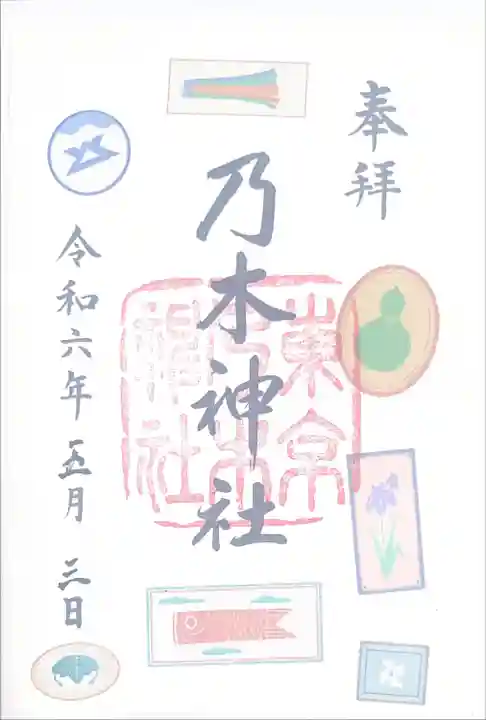 奉拝
乃木神社
東京
乃木
神社
令和六年五月三日